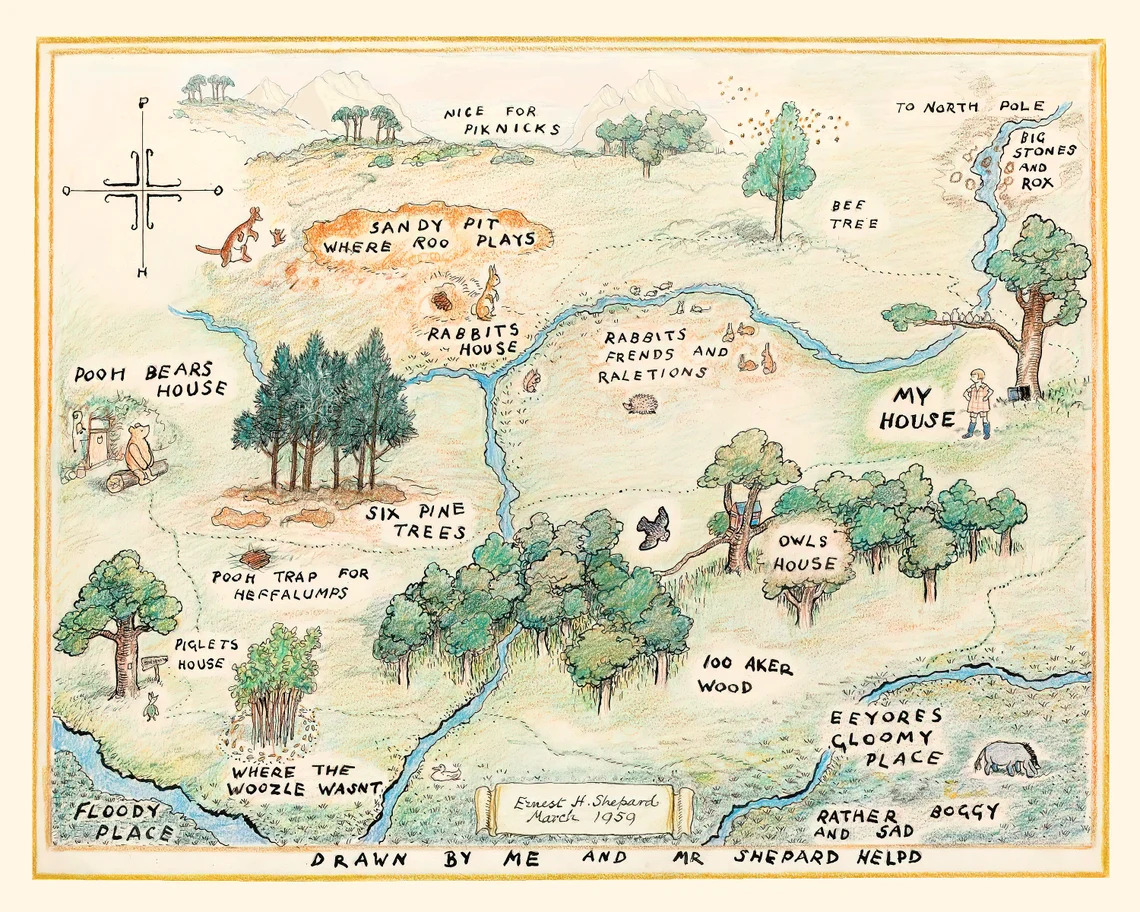 NICE FOR
PIKNICKS
TO NORTH POLE
BIG
STONES
AND
ROX
P
O O
H
SANDY PIT
WHERE ROO PLAYS
BEE
TREE
RABBITS
HOUSE
RABBITS
FRENDS AND
RALETIONS
POOH BEARS
HOUSE
MY
HOUSE
SIX PINE
TREES
OWLS
HOUSE
POOH TRAP FOR
HEFFALUMPS
PIGLETS
HOUSE
100 AKER
WOOD
EEYORES
GLOOMY
PLACE
WHERE THE
WOOZLE WASNT
FLOODY
PLACE
Ernest H. Shepard
March 1959
RATHER BOGGY
AND SAD
DRAWN BY ME AND MR SHEPARD HELPD